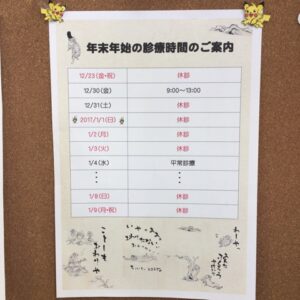 年末年始の診療時間のご案内
12/23(金・祝) 休診
12/30(金) 9:00〜13:00
12/31(土) 休診
2017/1/1(日) 休診
1/2(月) 休診
1/3(火) 休診
1/4(水) 平常診療
⋮ ⋮
1/8(日) 休診
1/9(月・祝) 休診
ことしも
おわりや